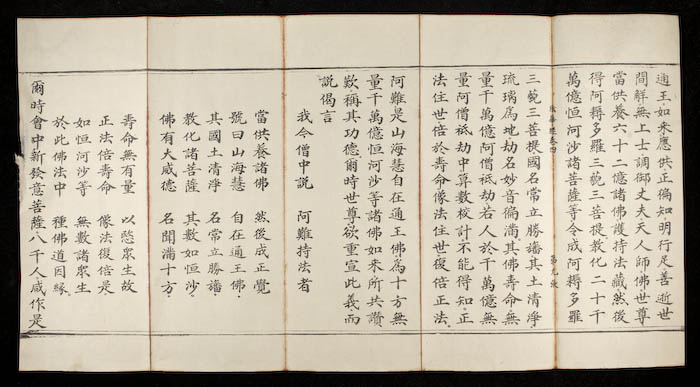 通王如来應供正徧知明行足善逝世
間解無上士調御丈夫天人師佛世尊
當供養六十二億諸佛護持法藏然後
得阿耨多羅三藐三菩提教化二十千
萬億恒河沙諸菩薩等令成阿耨多羅
法華經卷四 第九張
三藐三菩提國名常立勝旛其土清淨
琉璃爲地劫名妙音徧滿其佛壽命無
量千萬億阿僧祇劫若人於千萬億無
量阿僧祇劫中算數校計不能得知正
法住世倍於壽命像法住世復倍正法
阿難是山海慧自在通王佛爲十方無
量千萬億恒河沙等諸佛如来所共讚
歎稱其功德爾時世尊欲重宣此義而
説偈言
我今僧中説 阿難持法者
當供養諸佛 然後成正覺
號曰山海慧 自在通王佛
其國土清淨 名常立勝旛
教化諸菩薩 其數如恒沙
佛有大威德 名聞滿十方
壽命無有量 以愍衆生故
正法倍壽命 像法復倍是
如恒河沙等 無數諸衆生
於此佛法中 種佛道因緣
爾時會中新發意菩薩八千人咸作是